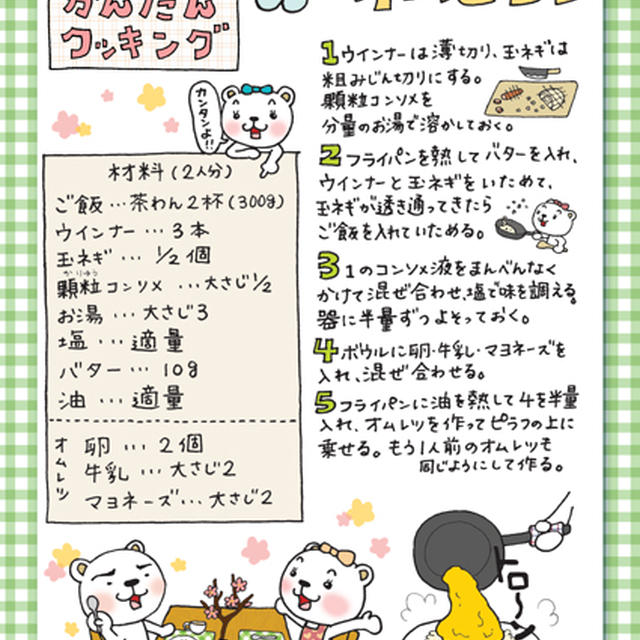 かんたん
クッキング
カンタンよ!!
材料(2人分)
ご飯…茶わん2杯(300g)
ウインナー…3本
玉ネギ…1/2個
かりゅう
顆粒コンソメ…大さじ1/2
お湯…大さじ3
塩…適量
バター…10g
油…適量
オムレツ
卵…2個
牛乳…大さじ2
マヨネーズ…大さじ2
1 ウインナーは薄切り、玉ネギは
粗みじん切りにする。
顆粒コンソメを
分量のお湯で溶かしておく。
2 フライパンを熱してバターを入れ、
ウインナーと玉ネギをいためて、
玉ネギが透き通ってきたら
ご飯を入れていためる。
3 1のコンソメ液をまんべんなく
かけて混ぜ合わせ、塩で味を調える。
器に半量ずつよそっておく。
4 ボウルに卵・牛乳・マヨネーズを
入れ、混ぜ合わせる。
5 フライパンに油を熱して4を半量
入れ、オムレツを作ってピラフの上に
乗せる。もう1人前のオムレツも
同じようにして作る。
トロ〜ン